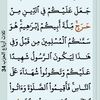 جَعَلَ عَلَيْكُمْ فِي ٱلدِّينِ مِنْ
حَرَجٍ مِّلَّةَ أَبِيكُمْ إِبْرَٰهِيمَ هُوَ
سَمَّىٰكُمُ ٱلْمُسْلِمِينَ مِن قَبْلُ وَفِي
هَٰذَا لِيَكُونَ ٱلرَّسُولُ شَهِيدًا
عَلَيْكُمْ وَتَكُونُوا۟ شُهَدَآءَ عَلَى
ٱلنَّاسِ فَأَقِيمُوا۟ ٱلصَّلَوٰةَ